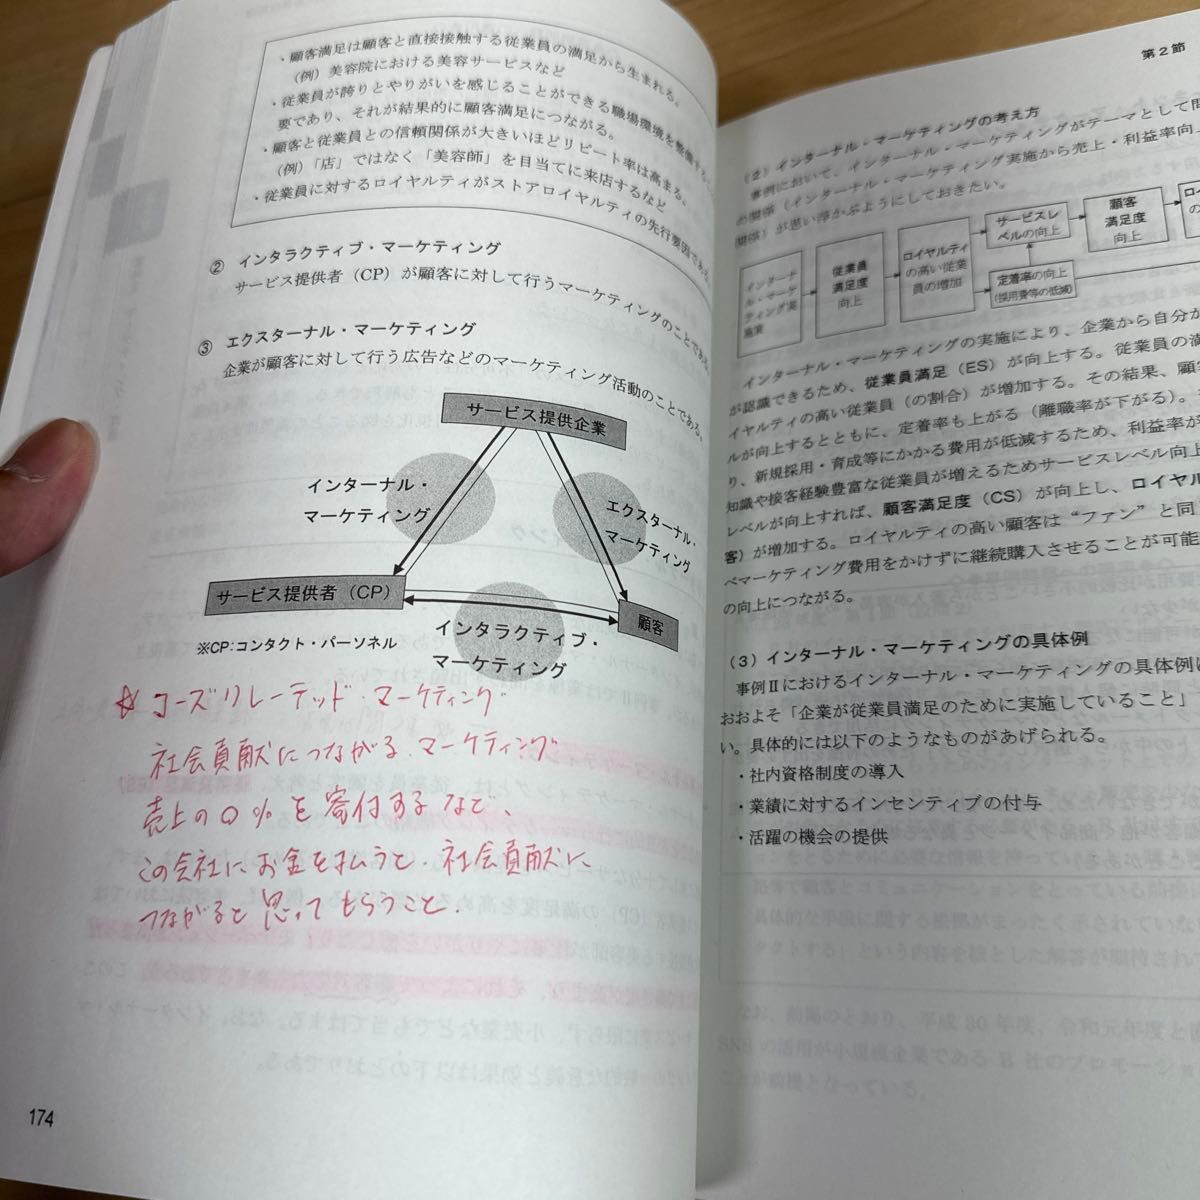 ・顧客満足は顧客と直接接触する従業員の満足から生まれる。
（例）美容院における美容サービスなど
・従業員が誇りとやりがいを感じることができる職場環境を整備する
要であり、それが結果的に顧客満足につながる。
・顧客と従業員との信頼関係が大きいほどリピート率は高まる。
（例）「店」ではなく「美容師」を目当てに来店するなど
・従業員に対するロイヤルティがストアロイヤルティの先行要因である
② インタラクティブ・マーケティング
サービス提供者（CP）が顧客に対して行うマーケティングのことである。
③ エクスターナル・マーケティング
企業が顧客に対して行う広告などのマーケティング活動のことである。
サービス提供企業
インターナル・
マーケティング
エクスターナル・
マーケティング
サービス提供者（CP）
顧客
※CP:コンタクト・パーソネル
インタラクティブ・
マーケティング
☆ コーズリレーテッド・マーケティング
社会貢献につながる、マーケティング
売上の○％を寄付するなど、
この会社にお金を払うと、社会貢献に
つながると思ってもらうこと.
174
第２節
（２）インターナル・マーケティングの考え方
事例において、インターナル・マーケティングがテーマとして問
の関係（インターナル・マーケティング実施から売上・利益率向
関係）が思い浮かぶようにしておきたい。
インターナ
ル・マーケ
ティング実
施
従業員
満足度
向上
ロイヤルティ
の高い従業
員の増加
サービスレ
ベルの向上
定着率の向上
（採用費等の低減）
顧客
満足度
向上
ロイ
の
インターナル・マーケティングの実施により、企業から自分が
が認識できるため、従業員満足（ES）が向上する。従業員の満
イヤルティの高い従業員（の割合）が増加する。その結果、顧客
ルが向上するとともに、定着率も上がる（離職率が下がる）。
り、新規採用・育成等にかかる費用が低減するため、利益率が
知識や接客経験豊富な従業員が増えるためサービスレベル向上
レベルが向上すれば、顧客満足度（CS）が向上し、ロイヤル
客）が増加する。ロイヤルティの高い顧客は“ファン”と同
ベマーケティング費用をかけずに継続購入させることが可能
の向上につながる。
（３）インターナル・マーケティングの具体例
事例Ⅱにおけるインターナル・マーケティングの具体例は
おおよそ「企業が従業員満足のために実施していること」
い。具体的には以下のようなものがあげられる。
・社内資格制度の導入
・業績に対するインセンティブの付与
・活躍の機会の提供